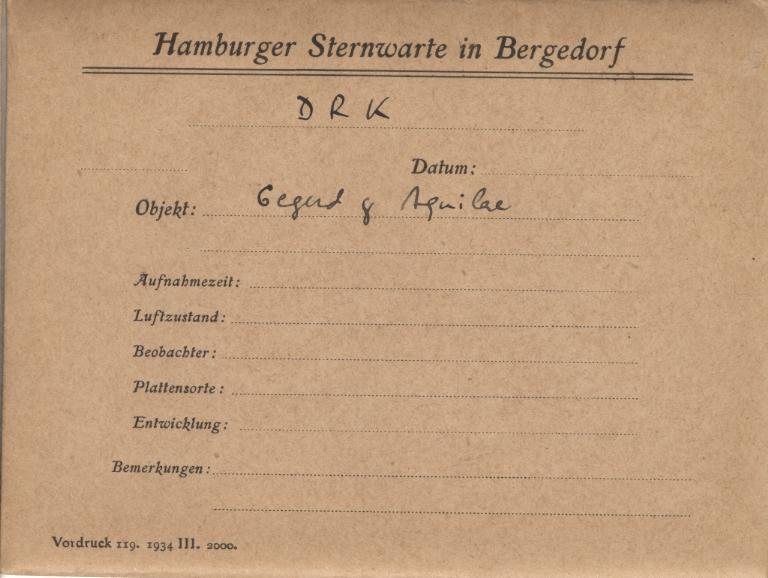 Hamburger Sternwarte in Bergedorf
D R K
Datum:
Objekt: Gegend γ Aquilae
Aufnahmezeit:
Luftzustand:
Beobachter:
Plattensorte:
Entwicklung:
Bemerkungen:
Vordruck 119. 1934 III. 2000.